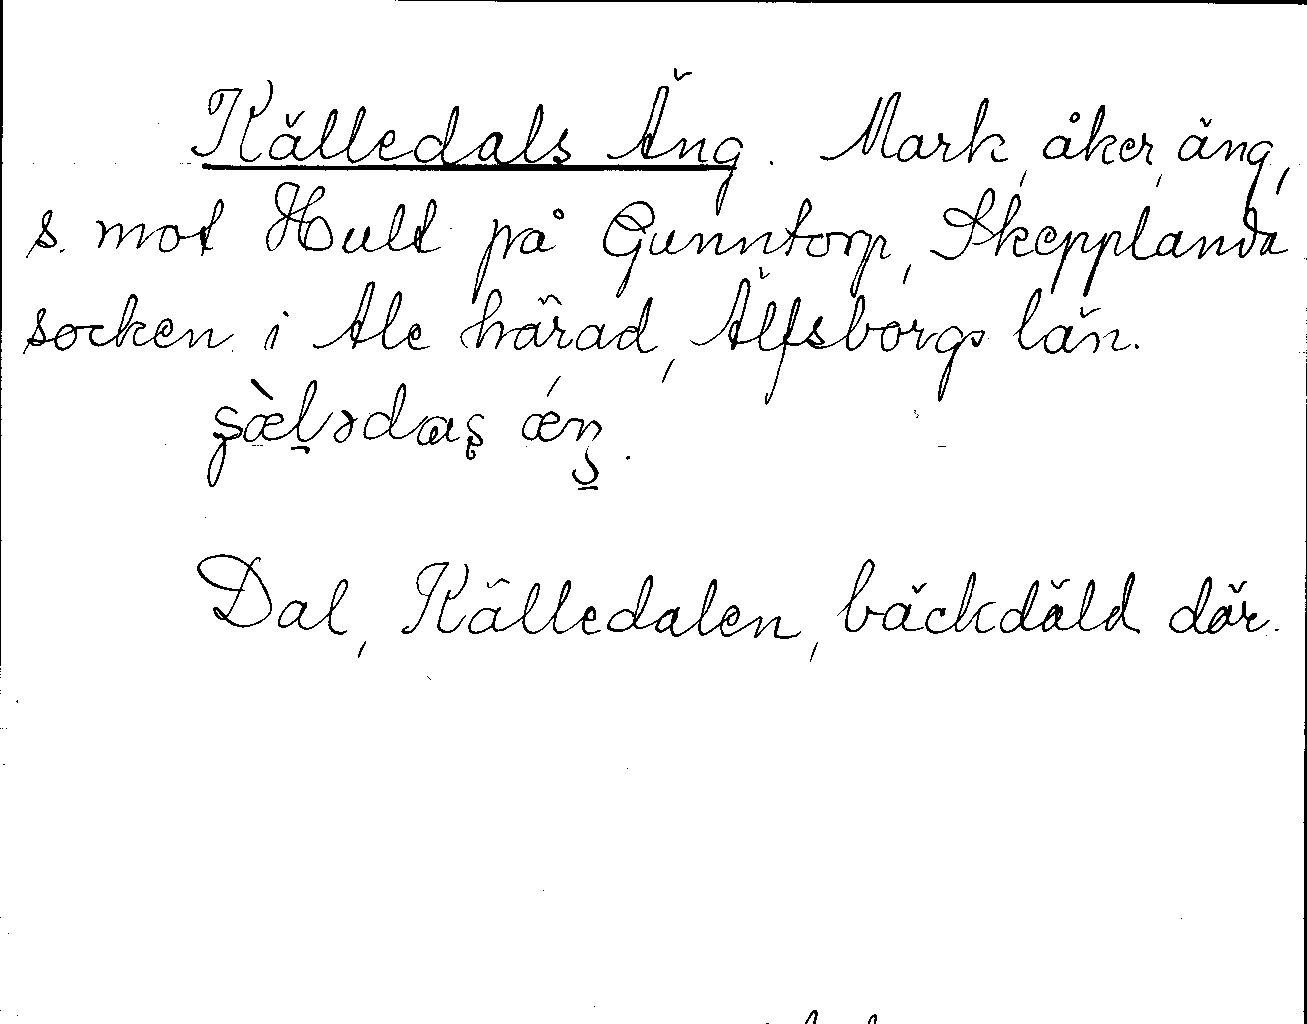 Källedals Äng. Mark, åker, äng,
s. mot Hult på Gunntorp, Skepplanda
socken i Ale härad, Älfsborgs län.
ʂæ̀ḻədaʂ ǽŋ.
Dal, Källedalen, bäckdäld där.